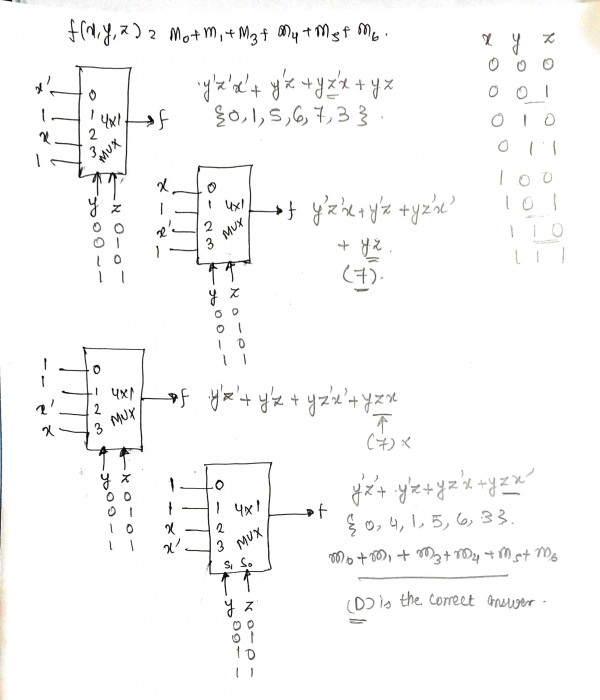 f(x,y,z) = m0+m1+m3+m4+m5+m6.
x y z
0 0 0
0 0 1
0 1 0
0 1 1
1 0 0
1 0 1
1 1 0
1 1 1
x' 0
1 1 4x1 f
x 2 MUX
1 3
y z
0 0
0 1
1 0
1 1
y'z'x' + y'z + yz'x + yz
{0,1,5,6,7,3}.
x 0
1 1 4x1 f
x' 2 MUX
1 3
y z
0 0
0 1
1 0
1 1
y'z'x + y'z + yz'x'
+ yz.
(7).
1 0
1 1 4x1 f
x' 2 MUX
x 3
y z
0 0
0 1
1 0
1 1
y'z' + y'z + yz'x' + yzx
(7) x
1 0
1 1 4x1 f
x 2 MUX
x' 3
S1 S0
y z
0 0
0 1
1 0
1 1
y'z' + y'z + yz'x + yzx'
{0, 4, 1, 5, 6, 3}.
m0+m1+m3+m4+m5+m6
(D) is the correct answer.